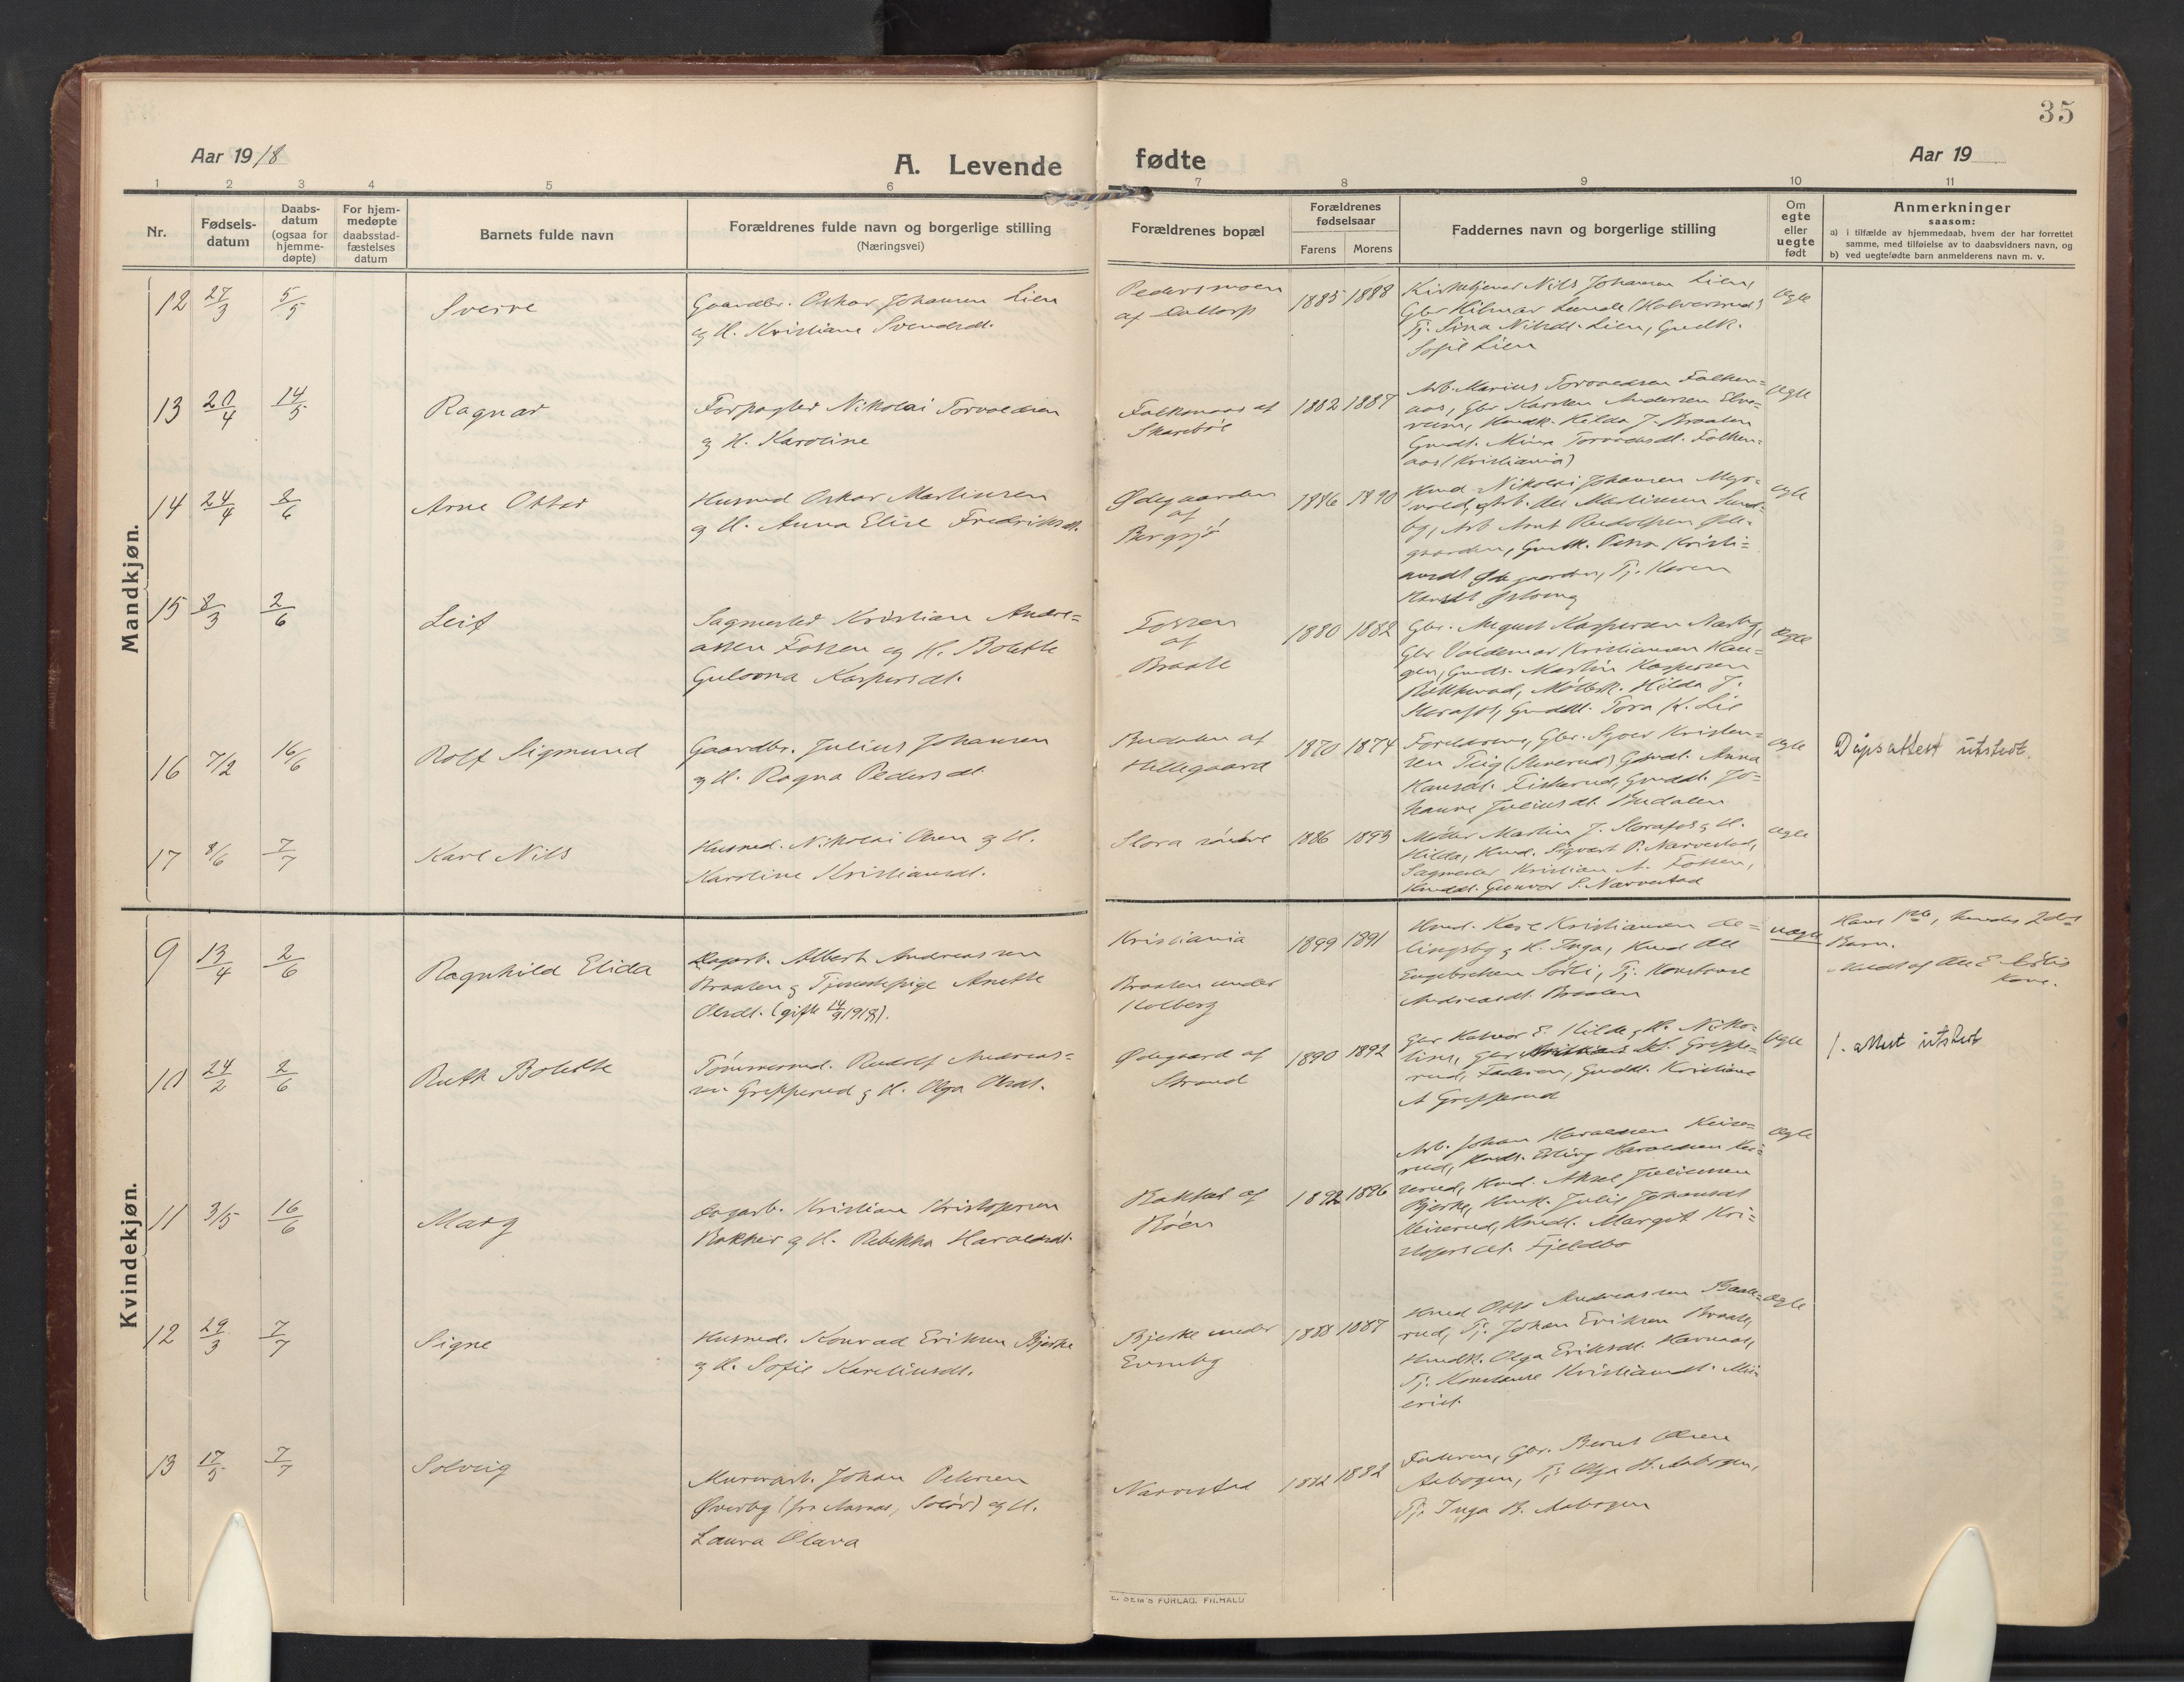 35
Aar 1918
A. Levende fødte
Aar 19
1 2 3 4 5 6 7 8 9 10 11
Nr.
Fødsels-
datum
Daabs-
datum
(ogsaa for
hjemme-
døpte)
For hjem-
medøpte
daabsstad-
fæstelses
datum
Barnets fulde navn
Forældrenes fulde navn og borgerlige stilling
(Næringsvei)
Forældrenes bopæl
Forældrenes
fødselsaar
Farens Morens
Faddernes navn og borgerlige stilling
Om
egte
eller
uegte
født
Anmerkninger
saasom:
a) i tilfælde av hjemmedaab, hvem der har forrettet
samme, med tilføielse av to daabsvidners navn, og
b) ved uegtefødte barn anmelderens navn m. v.
Mandkjøn.
12 27/3 5/5 Sverre
Gaardbr. Oskar Johansen Lien
og H. Kristiane Svendsdt.
Pedersmoen
af
1885 1888
Kirketjener Nils Johansen Lien,
Gbr Hilmar (Halversrud)
Tj. Lina Nilsdt. Lien, Gmdk.
Sofie Lien
egte
13 20/4 14/5 Ragnar
Forpagter Nikolai Torvaldsen
og H. Karoline
Falkenaas af
Skarebøl
1882 1887
Arb. Marius Torvaldsen Falken-
aas, Gbr Karsten Andersen Elve-
rum, Hmdk. Hilda J. Braaten
Gmdt. Mina Torvaldsdt. Falken-
aas (Kristiania)
egte
14 24/4 2/6 Arne Otter
Husmd Oskar Martinsen
og H. Anna Elise Fredriksdt.
Ødegaarden
af
Bergsjø
1886 1890
Hmd Nikolai Johansen Myr-
vold, Arb. Martinsen
by, Arb Arnt Rudolfsen Øde-
gaarden, Gmdk. Petra Kristi-
ansdt Ødegaarden, Tj. Karen
egte
15 8/3 2/6 Leif
Sagmester Kristian Andre-
assen Fossen og H. Bolette
Gulovna Kaspersdt.
Fossen
af
Braate
1880 1882
Gbr. August Kaspersen Næsby,
Gbr Valdemar Kristiansen Hau-
gen, Gmds. Martin Kaspersen
Møllersk. Hilda J.
Storafos, Gmddt. Tora K. Lie
egte
16 7/2 16/6 Rolf Sigmund
Gaardbr. Julius Johansen
og H. Ragna Pedersdt.
Budalen af
Hillegaard
1870 1874
Forældrene, Gbr. Kristen-
sen Teig Gmdt. Anna
Hansdt. Fiskerud, Gmddt. Jo-
hanne Juliusdt. Budalen
egte
Dåpsattest utstedt.
17 8/6 7/7 Karl Nils
Husmd. Nikolai Olsen og H.
Karoline Kristiansdt.
Slora søndre
1886 1893
Møller Martin J. Storafos og H.
Hilda, Hmd. Sigvart P. Narvestad,
Sagmester Kristian A. Fossen,
Hmddt. Gunvor S. Narvestad
egte
Kvindekjøn.
9 13/4 2/6 Ragnhild Elida
Dagarb. Albert Andreassen
Braaten og Tjenestepige Anette
Olsdt. (gift 14/9 1918).
Kristiania
Braaten under
Kolberg
1899 1891
Hmd. Karl Kristiansen
lingsby og H. Inga, Hmd Ole
Engebretsen Sørli, Tj. Konstanse
Andreasdt. Braaten
uegte
Hans 1ste, hendes 2det
Barn.
Meldt af Ole E. Sørlis
Kone.
10 24/2 2/6 Ruth Bolette
Tømmermd. Rudolf Andreas-
sen Grepperud og H. Olga Olsdt.
Ødegaard af
Strand
1890 1892
Gbr Halvor E. Kilde og H. Niko-
line, Gbr Kristian A. Greppe-
rud, Faderen, Gmddt. Kristiane
A Grepperud
egte
1. attest utstedt
11 3/5 16/6 Mary
Dagarb. Kristian Kristofersen
Bakken og H. Rebekka Haraldsdt.
Bakken af
Røen
1892 1896
Arb. Johan Haraldsen Keise-
rud, Hmds. Erling Haraldsen Kei-
serud, Hmd. Aksel Juliussen
Bjerke, Hmdk. Julie Johansdt
Keiserud, Hmdt. Margit Kri-
stofersdt. Fjeldbo
egte
12 29/3 7/7 Signe
Husmd. Konrad Eriksen Bjerke
og H. Sofie Kareliusdt.
Bjerke under
Evenby
1888 1887
Hmd Otto Andreassen Baale-
rud, Tj. Johan Eriksen Braate,
Hmdk. Olga Eriksdt. Havnaas,
Tj. Konstanse Kristiansdt.
egte
13 17/5 7/7 Solveig
Murerarb. Johan Petersen
Øverby (fra Aasnes, Solør) og H.
Laura Olava
Narvestad
1882 1882
Faderen, Gbr. Bernt Olsen
Aabogen, Tj. Olga B. Aabogen,
Tj. Inga B. Aabogen
E. SEM'S FORLAG. FR.HALD